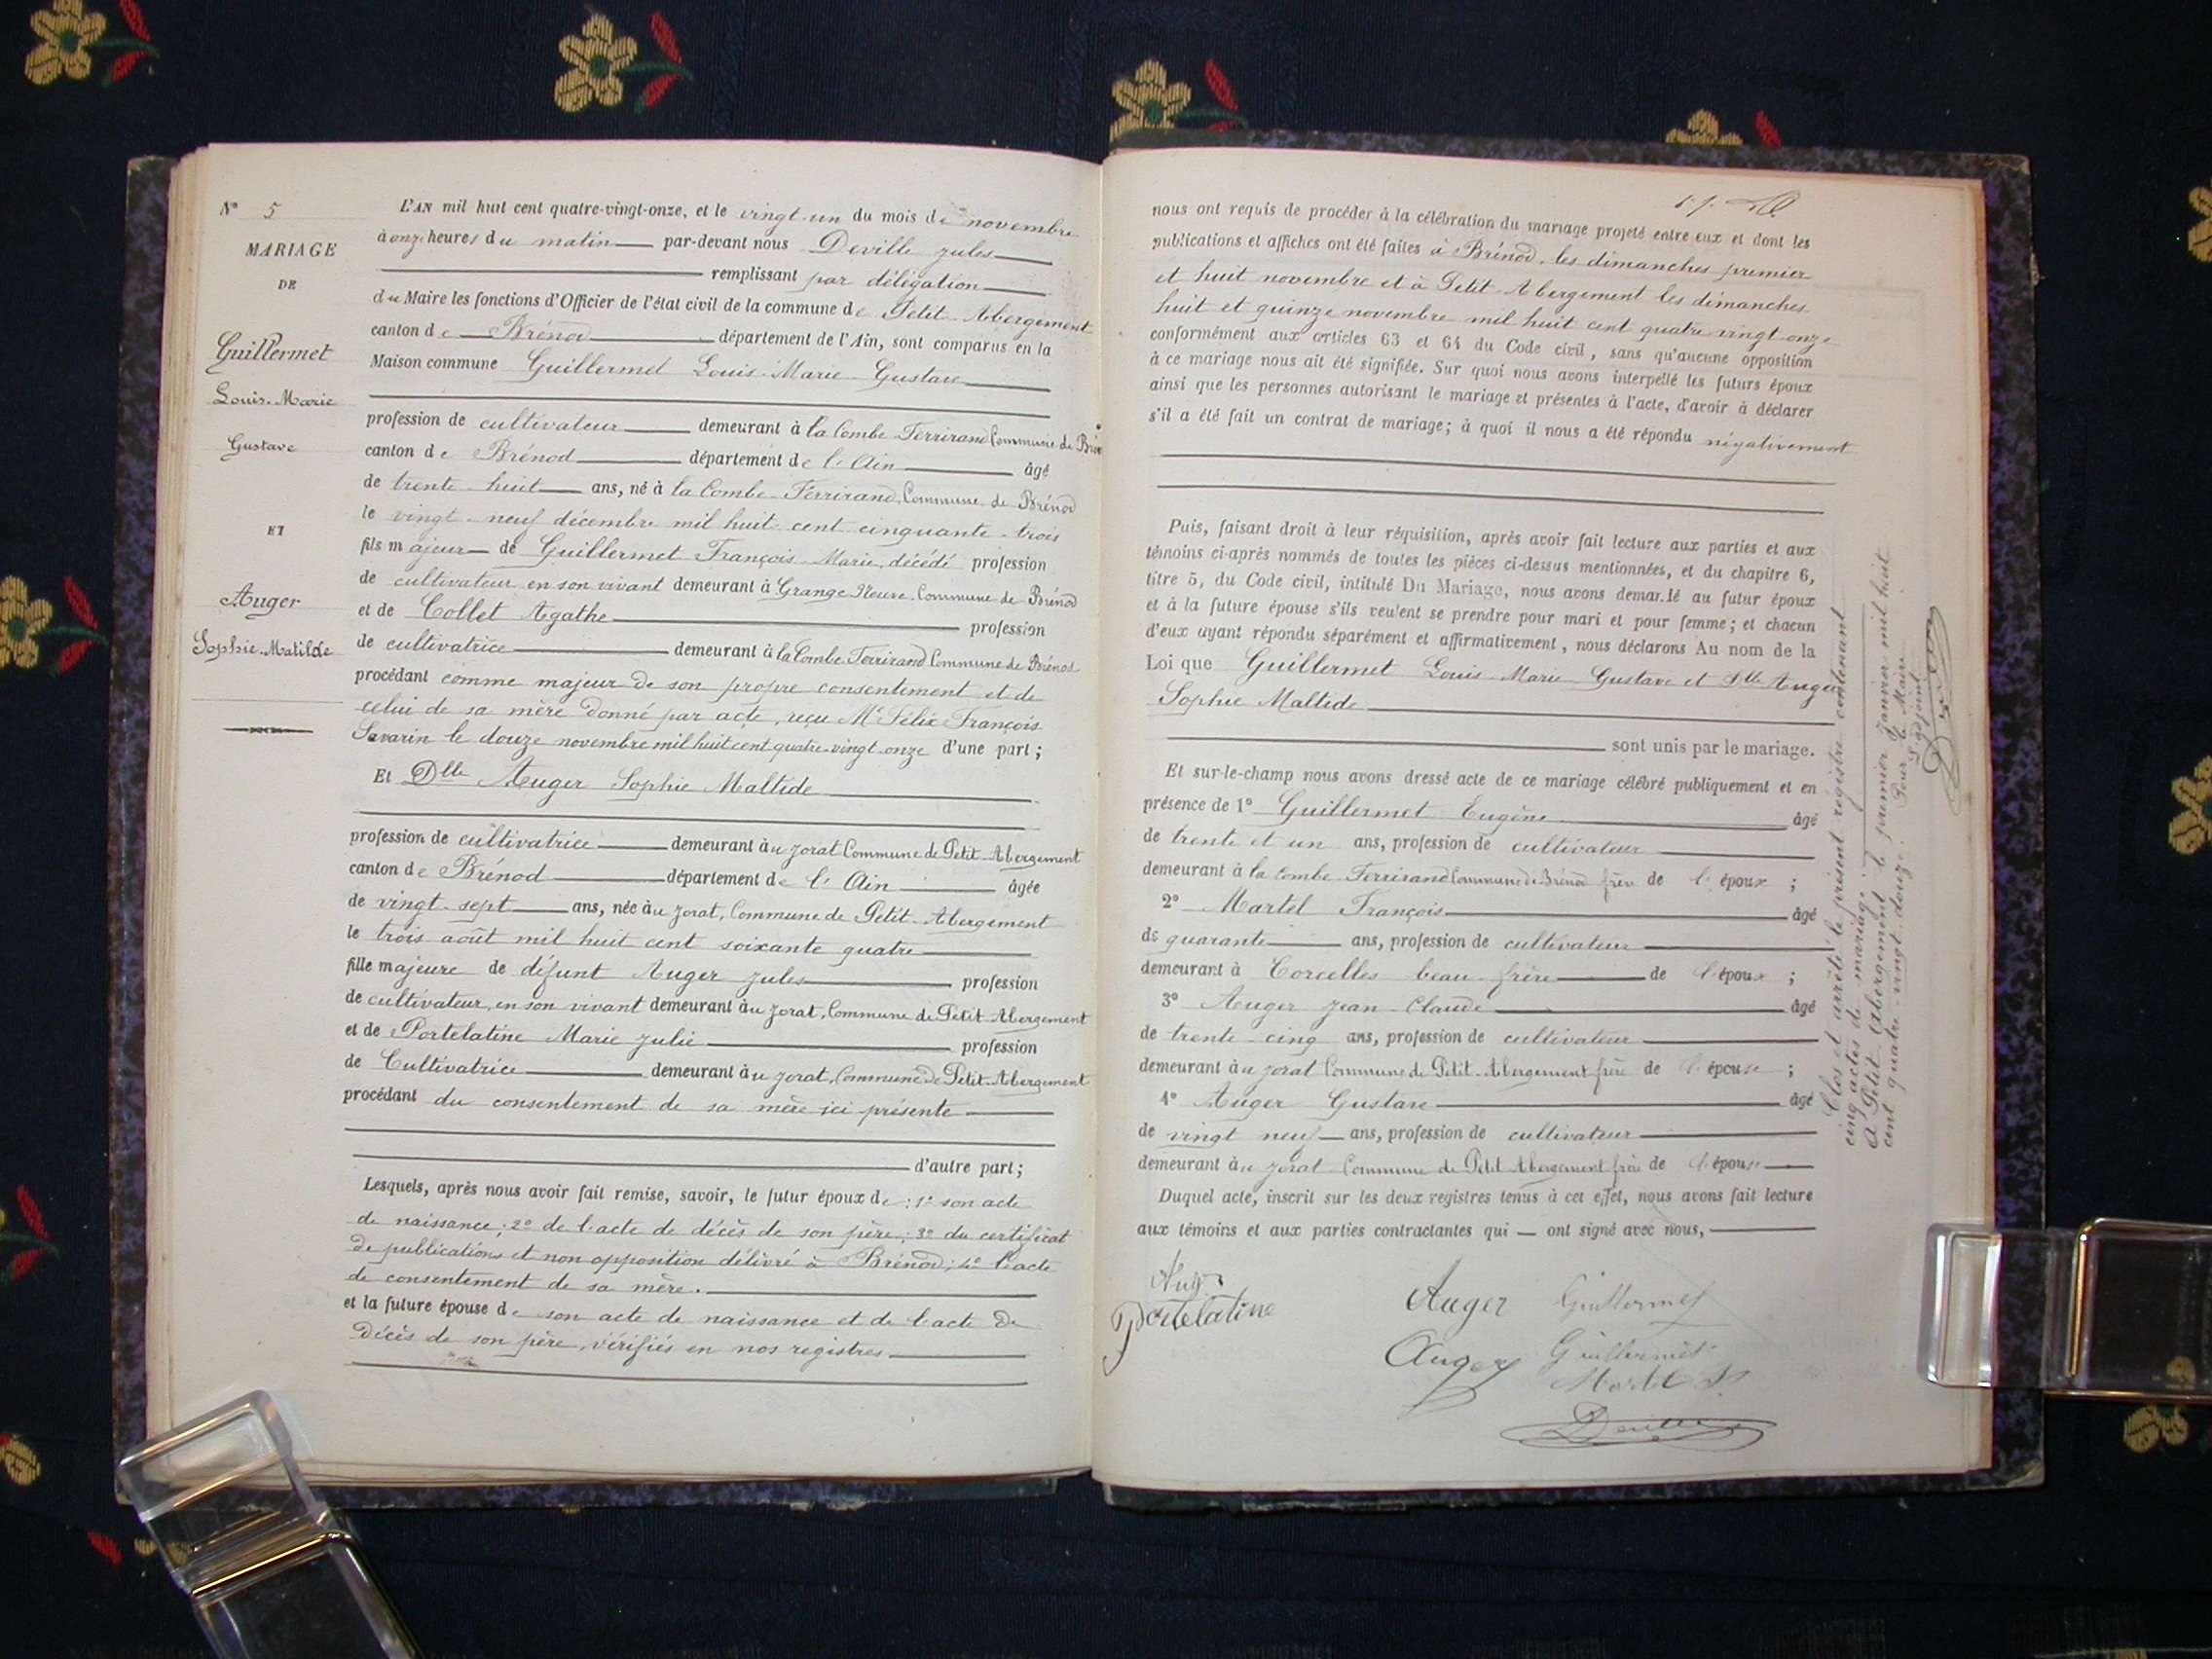 N° 5
MARIAGE
DE
Guillermet
Louis-Marie
Gustave
ET
Auger
Sophie-Matilde
L'AN mil huit cent quatre-vingt-onze, et le vingt-un du mois de novembre
à onze heures du matin par-devant nous Deville Jules
remplissant par délégation
du Maire les fonctions d'Officier de l'état civil de la commune de Petit-Abergement
canton de Brénod département de l'Ain, sont comparus en la
Maison commune Guillermet Louis-Marie-Gustave
profession de cultivateur demeurant à la Combe-Ferrirand Commune de
canton de Brénod département de l'Ain âgé
de trente-huit ans, né à la Combe-Ferrirand, Commune de Brénod
le vingt-neuf décembre mil huit cent cinquante-trois
fils majeur de Guillermet François-Marie, décédé profession
de cultivateur en son vivant demeurant à Grange-Neuve Commune de Brénod
et de Collet Agathe profession
de cultivatrice demeurant à la Combe Ferrirand Commune de Brénod
procédant comme majeur de son propre consentement et de
celui de sa mère donné par acte, reçu Me Félix-François
Savarin le douze novembre mil huit cent quatre-vingt-onze d'une part;
Et Dlle Auger Sophie Maltide
profession de cultivatrice demeurant àu Jorat Commune de Petit-Abergement
canton de Brénod département de l'Ain âgée
de vingt-sept ans, née àu Jorat, Commune de Petit-Abergement
le trois août mil huit cent soixante quatre
fille majeure de défunt Auger Jules profession
de cultivateur, en son vivant demeurant àu Jorat, Commune de Petit-Abergement
et de Portelatine Marie Julie profession
de Cultivatrice demeurant àu Jorat, Commune de Petit-Abergement
procédant du consentement de sa mère ici présente
d'autre part;
Lesquels, après nous avoir fait remise, savoir, le futur époux de : 1° son acte
de naissance; 2° de l'acte de décès de son père; 3° du certificat
de publications et non opposition délivré à Brénod; 4° l'acte
de consentement de sa mère.
et la future épouse de son acte de naissance et de l'acte de
décès de son père, vérifiés en nos registres
nous ont requis de procéder à la célébration du mariage projeté entre eux et dont les
publications et affiches ont été faites à Brénod, les dimanches premier
et huit novembre et à Petit-Abergement les dimanches
huit et quinze novembre mil huit cent quatre vingt onze
conformément aux articles 63 et 64 du Code civil, sans qu'aucune opposition
à ce mariage nous ait été signifiée. Sur quoi nous avons interpellé les futurs époux
ainsi que les personnes autorisant le mariage et présentes à l'acte, d'avoir à déclarer
s'il a été fait un contrat de mariage; à quoi il nous a été répondu négativement
Puis, faisant droit à leur réquisition, après avoir fait lecture aux parties et aux
témoins ci-après nommés de toutes les pièces ci-dessus mentionnées, et du chapitre 6,
titre 5, du Code civil, intitulé Du Mariage, nous avons demandé au futur époux
et à la future épouse s'ils veulent se prendre pour mari et pour femme; et chacun
d'eux ayant répondu séparément et affirmativement, nous déclarons Au nom de la
Loi que Guillermet Louis-Marie-Gustave et Dlle Auger
Sophie Maltide
sont unis par le mariage.
Et sur-le-champ nous avons dressé acte de ce mariage célébré publiquement et en
présence de 1° Guillermet Eugène âgé
de trente et un ans, profession de cultivateur
demeurant à la Combe-Ferrirand Commune de Brénod frère de l'époux ;
2° Martel François âgé
de quarante ans, profession de cultivateur
demeurant à Corcelles beau-frère de l'époux ;
3° Auger Jean-Claude âgé
de trente-cinq ans, profession de cultivateur
demeurant àu Jorat Commune de Petit-Abergement frère de l'épouse ;
4° Auger Gustave âgé
de vingt neuf ans, profession de cultivateur
demeurant àu Jorat Commune de Petit Abergement frère de l'épouse
Duquel acte, inscrit sur les deux registres tenus à cet effet, nous avons fait lecture
aux témoins et aux parties contractantes qui ont signé avec nous,
Portelatine
Auger Guillermet
Auger Guillermet
Martel F.
Deville
Clos et arrêté le présent registre contenant
cinq actes de mariage.
A Petit-Abergement le premier Janvier mil huit
cent quatre-vingt-douze. Pour le Maire
l'adjoint